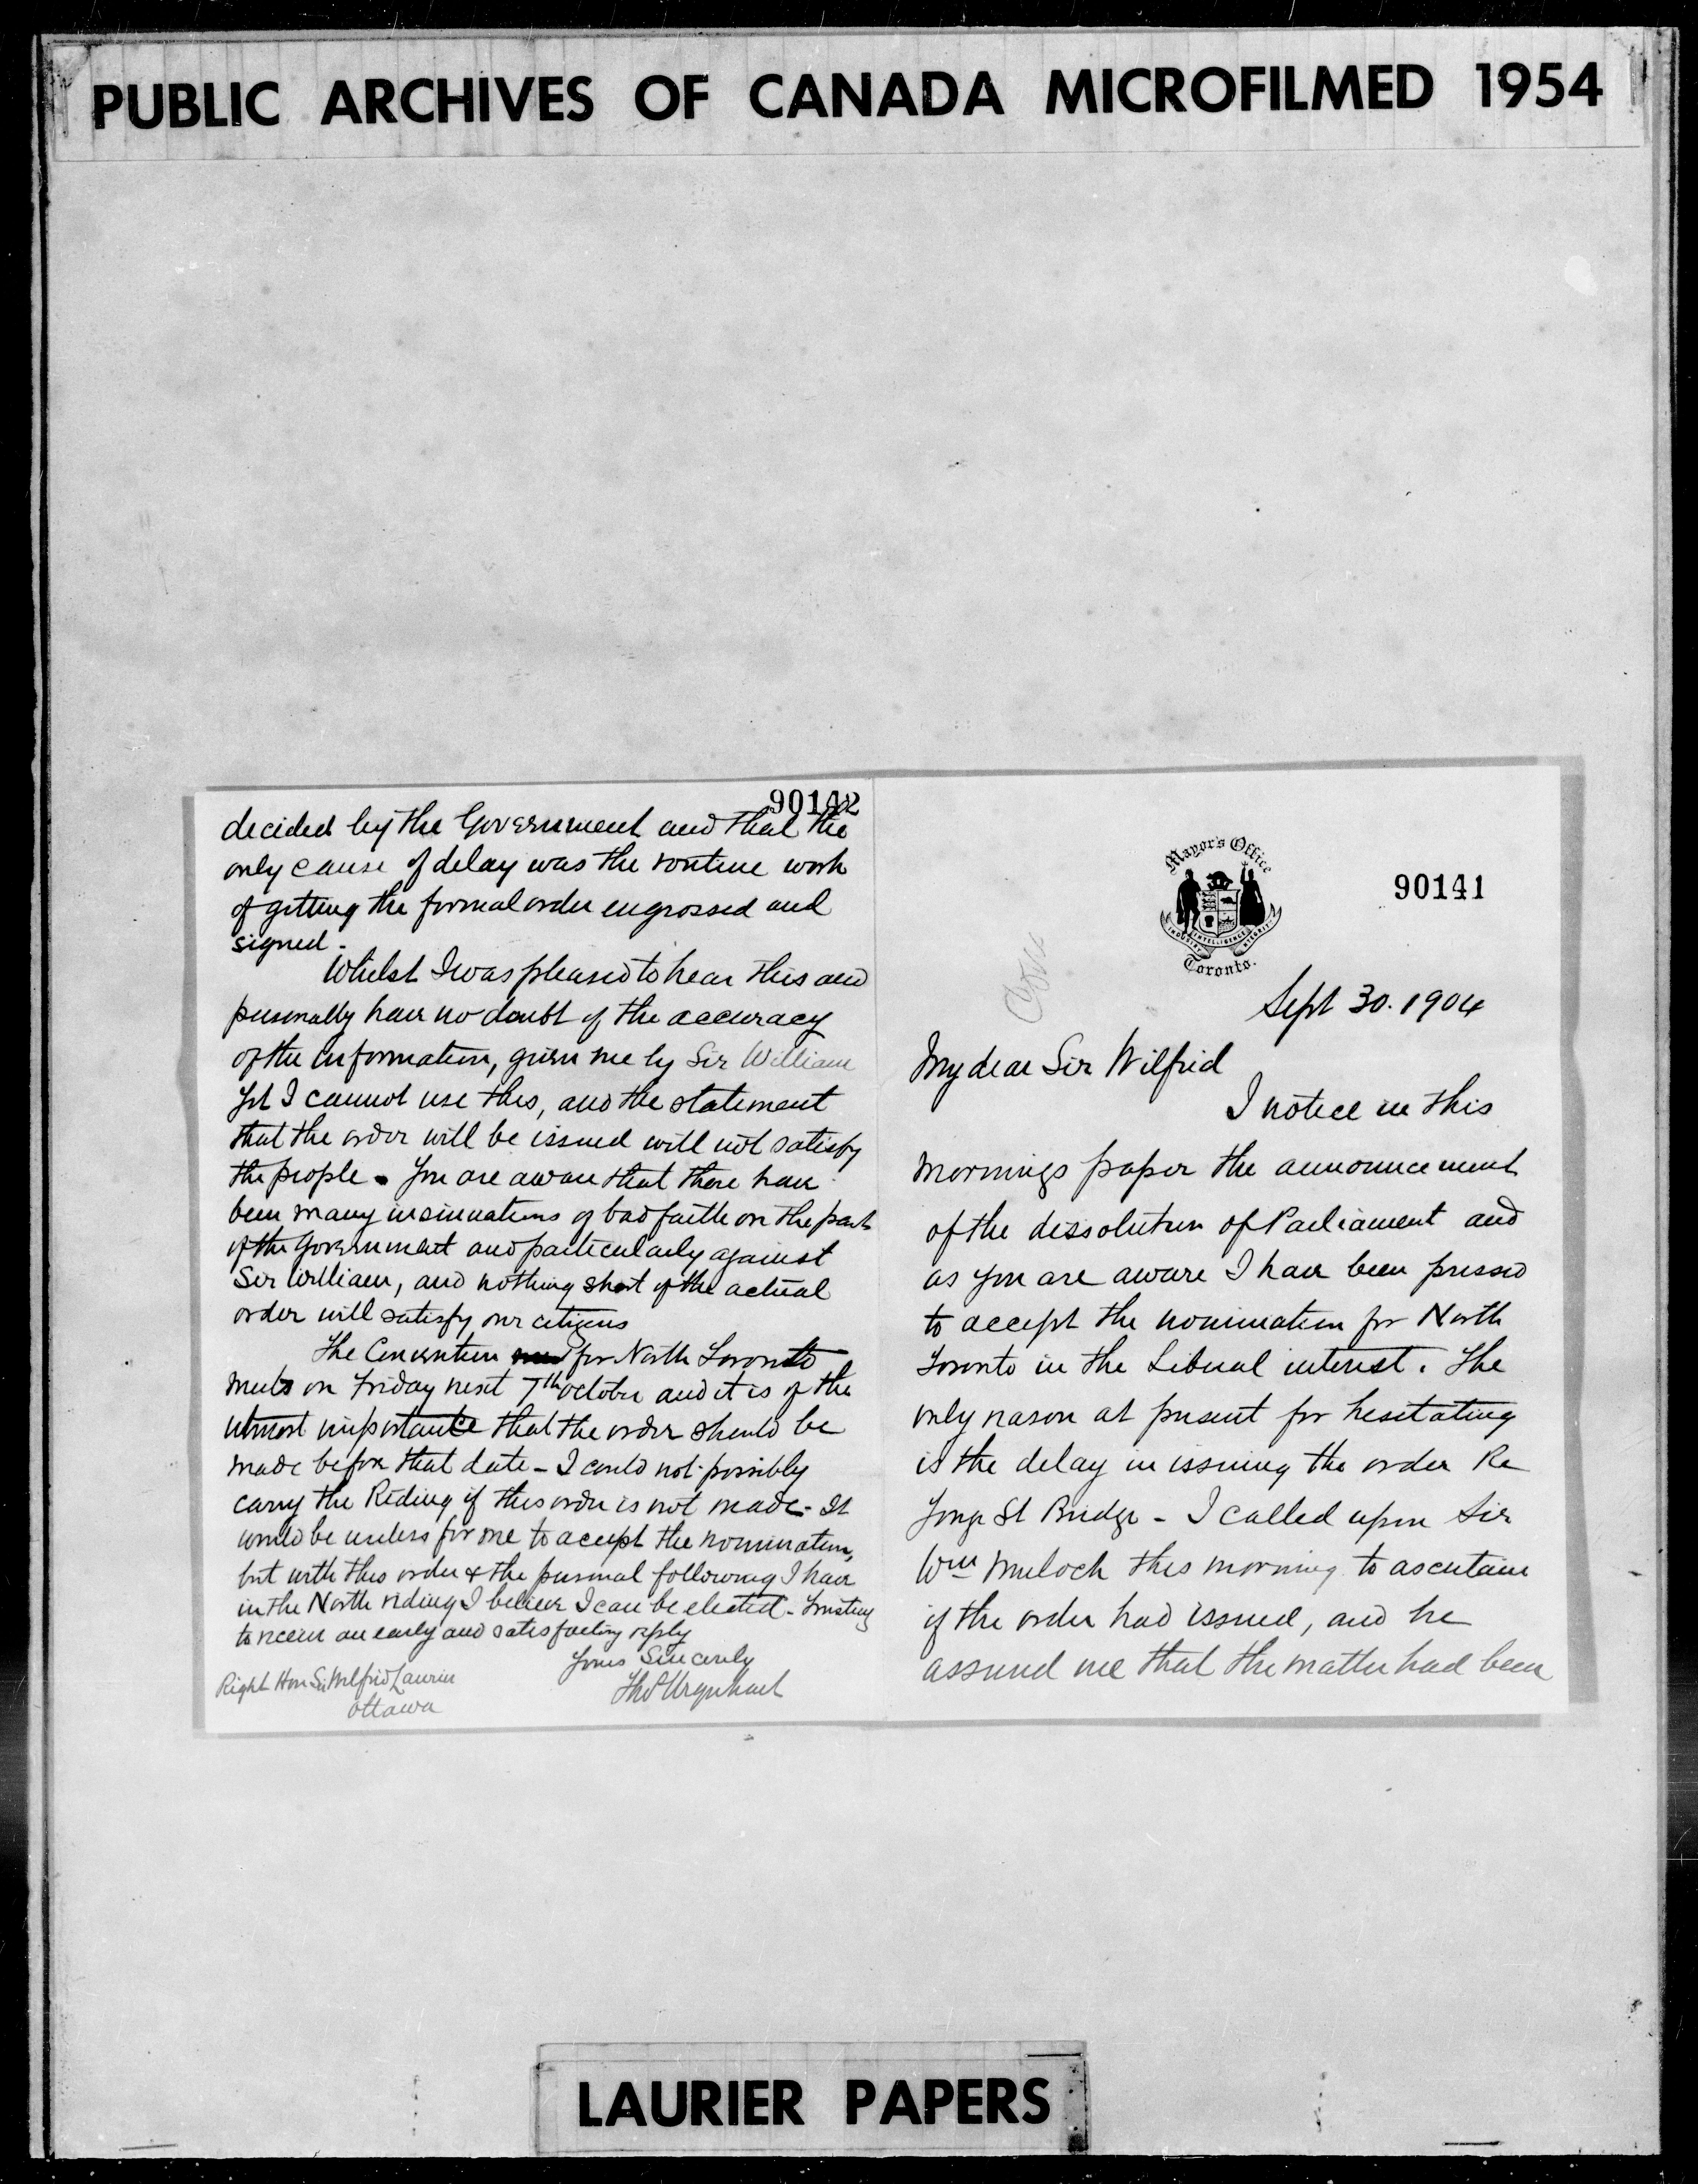 PUBLIC ARCHIVES OF CANADA MICROFILMED 1954
90141
Mayor's Office
INDUSTRY INTELLIGENCE INTEGRITY
Toronto.
Sept 30. 1904
My dear Sir Wilfrid
I notice in this
mornings paper the announcement
of the dissolution of Parliament and
as you are aware I have been pressed
to accept the nomination for North
Toronto in the Liberal interest. The
only reason at present for hesitating
is the delay in issuing the order Re
Yonge St Bridge - I called upon Sir
Wm Mulock this morning to ascertain
if the order had issued, and he
assured me that the matter had been
90142
decided by the Government and that the
only cause of delay was the routine work
of getting the formal order engrossed and
signed.
Whilst I was pleased to hear this and
personally have no doubt of the accuracy
of the information, given me by Sir William
yet I cannot use this, and the statement
that the order will be issued will not satisfy
the people. You are aware that there have
been many insinuations of bad faith on the part
of the Government and particularly against
Sir William, and nothing short of the actual
order will satisfy our citizens
The Convention for North Toronto
meets on Friday next 7th October and it is of the
utmost importance that the order should be
made before that date - I could not possibly
carry the Riding if this order is not made - It
would be useless for me to accept the nomination,
but with this order & the personal following I have
in the North riding I believe I can be elected - Trusting
to receive an early and satisfactory reply
Yours Sincerely
Thos Urquhart
Right Hon Sir Wilfrid Laurier
Ottawa
LAURIER PAPERS